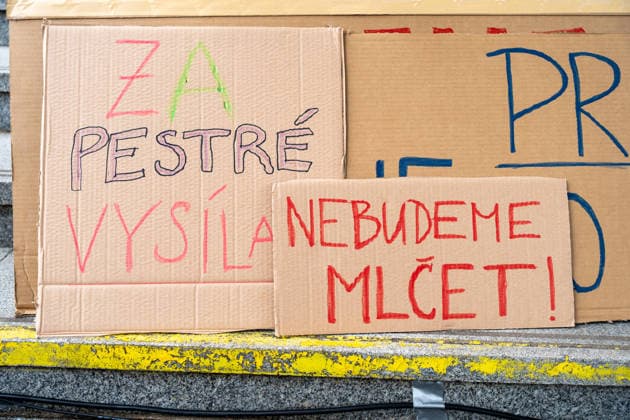 ZA
PESTRÉ
VYSÍLA
NEBUDEME
MLČET!
PR